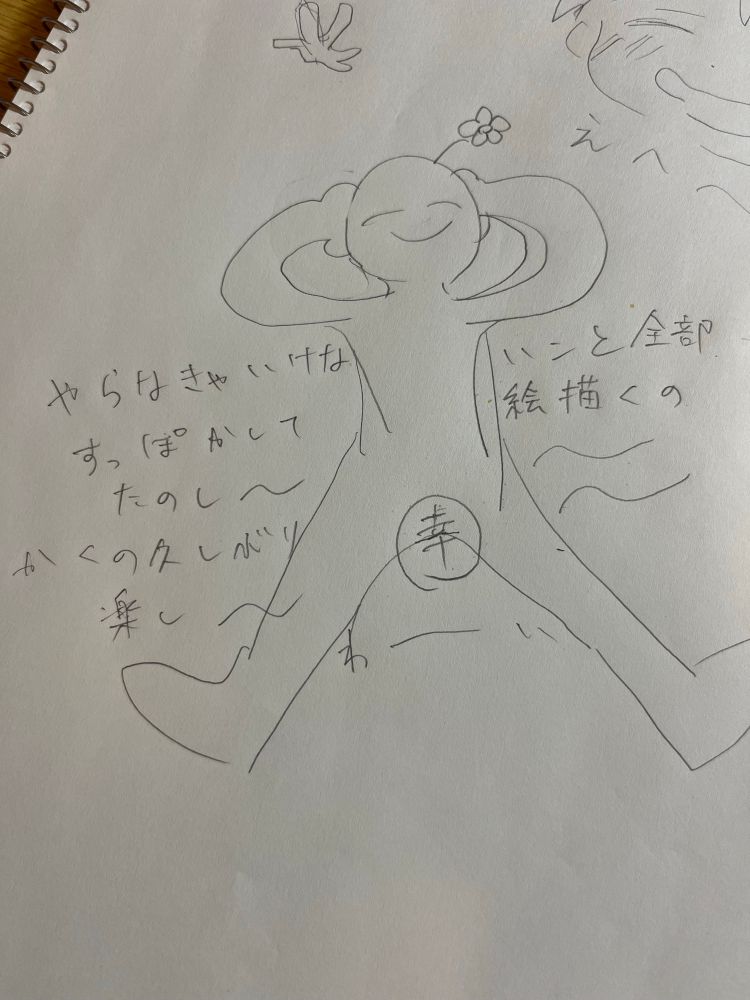 えへ
やらなきゃいけないコと全部
すっぽかして絵描くの
たのし〜
かくの久しぶり
楽し〜
幸
わーい